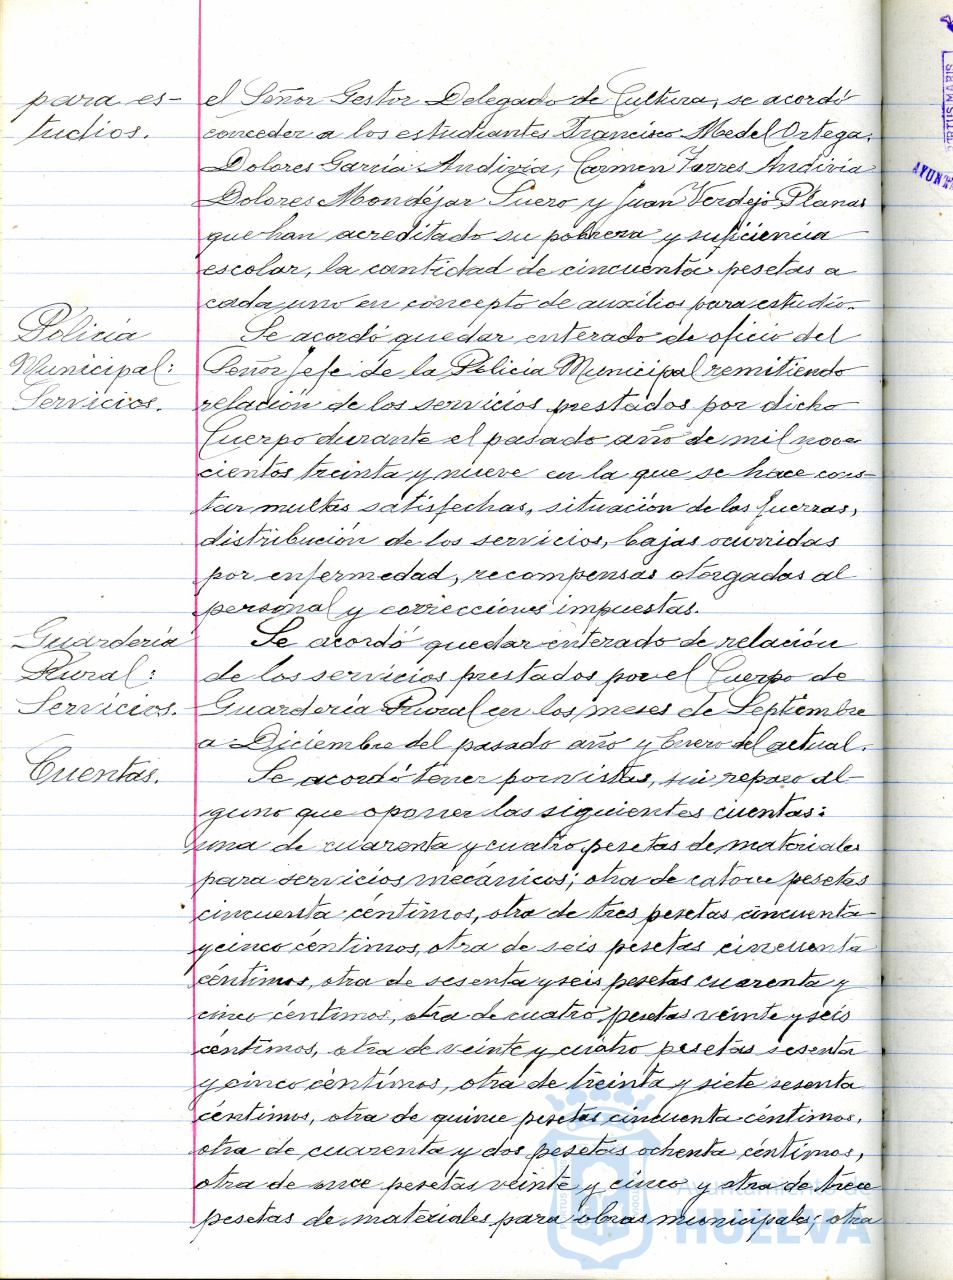 para es-
tudios.
el Señor Gestor Delegado de Cultura, se acordó
conceder a los estudiantes Francisco Medel Ortega,
Dolores García Andivia, Carmen Torres Andivia
Dolores Mondéjar Suero y Juan Verdejo Planas
que han acreditado su pobreza y suficiencia
escolar, la cantidad de cincuenta pesetas a
cada uno en concepto de auxilios para estudio.
Policía
Municipal:
Servicios.
Se acordó quedar enterado de oficio del
Señor Jefe de la Policía Municipal remitiendo
relación de los servicios prestados por dicho
Cuerpo durante el pasado año de mil nove-
cientos treinta y nueve en la que se hace cons-
tar multas satisfechas, situación de las fuerzas,
distribución de los servicios, bajas ocurridas
por enfermedad, recompensas otorgadas al
personal y correcciones impuestas.
Guardería
Rural:
Servicios.
Se acordó quedar enterado de relación
de los servicios prestados por el Cuerpo de
Guardería Rural en los meses de Septiembre
a Diciembre del pasado año y Enero del actual.
Cuentas.
Se acordó tener por vistas, sin reparo al-
guno que oponer las siguientes cuentas:
una de cuarenta y cuatro pesetas de materiales
para servicios mecánicos; otra de catorce pesetas
cincuenta céntimos, otra de tres pesetas cincuenta
y cinco céntimos, otra de seis pesetas cincuenta
céntimos, otra de sesenta y seis pesetas cuarenta y
cinco céntimos, otra de cuatro pesetas veinte y seis
céntimos, otra de veinte y cuatro pesetas sesenta
y cinco céntimos, otra de treinta y siete sesenta
céntimos, otra de quince pesetas cincuenta céntimos,
otra de cuarenta y dos pesetas ochenta céntimos,
otra de once pesetas veinte y cinco y otra de trece
pesetas de materiales para obras municipales; otra
Ayuntamiento de
HUELVA